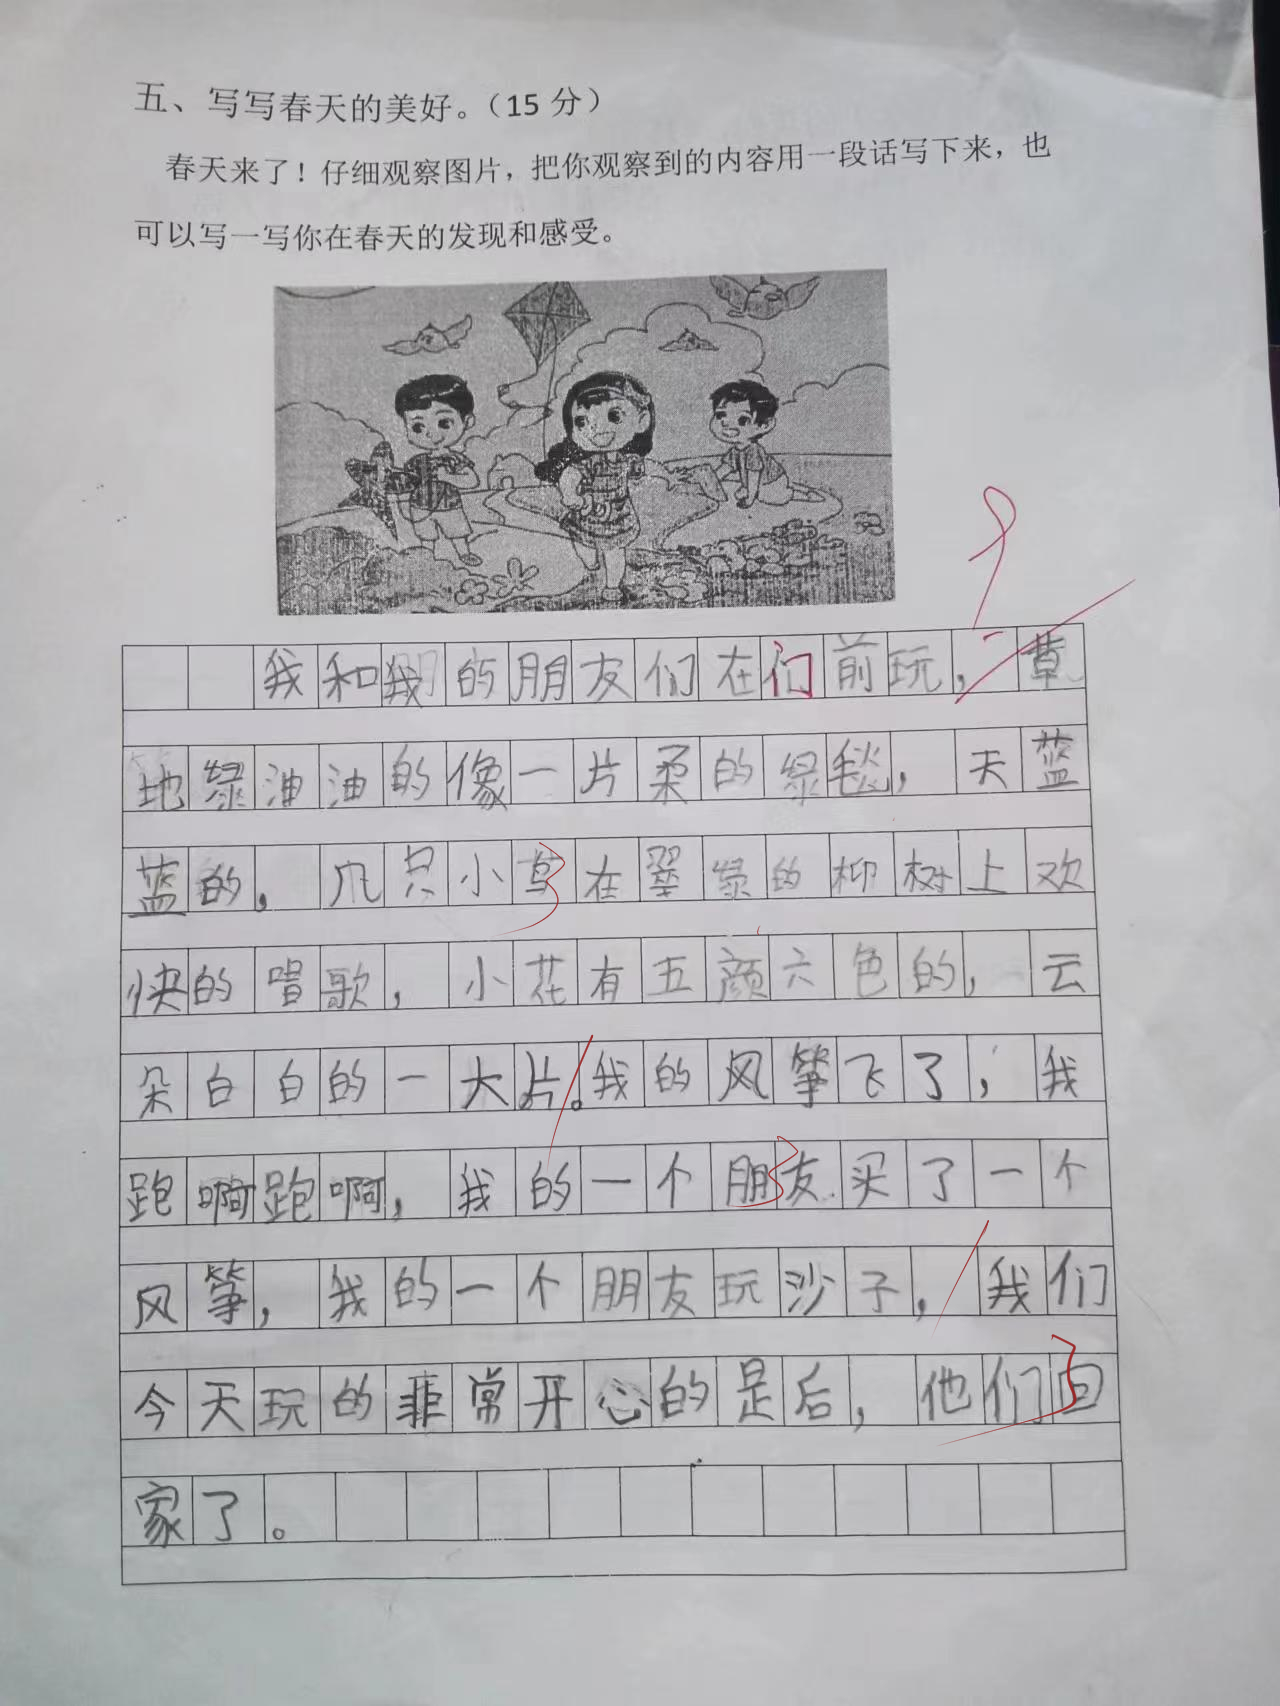 五、写写春天的美好。（15 分）
春天来了！仔细观察图片，把你观察到的内容用一段话写下来，也
可以写一写你在春天的发现和感受。
我和我的朋友们在们前玩，草
地绿油油的像一片柔的绿毯，天蓝
蓝的，几只小鸟在翠绿的柳树上欢
快的唱歌，小花有五颜六色的，云
朵白白的一大片。我的风筝飞了，我
跑啊跑啊，我的一个朋友买了一个
风筝，我的一个朋友玩沙子，我们
今天玩的非常开心的是后，他们回
家了。